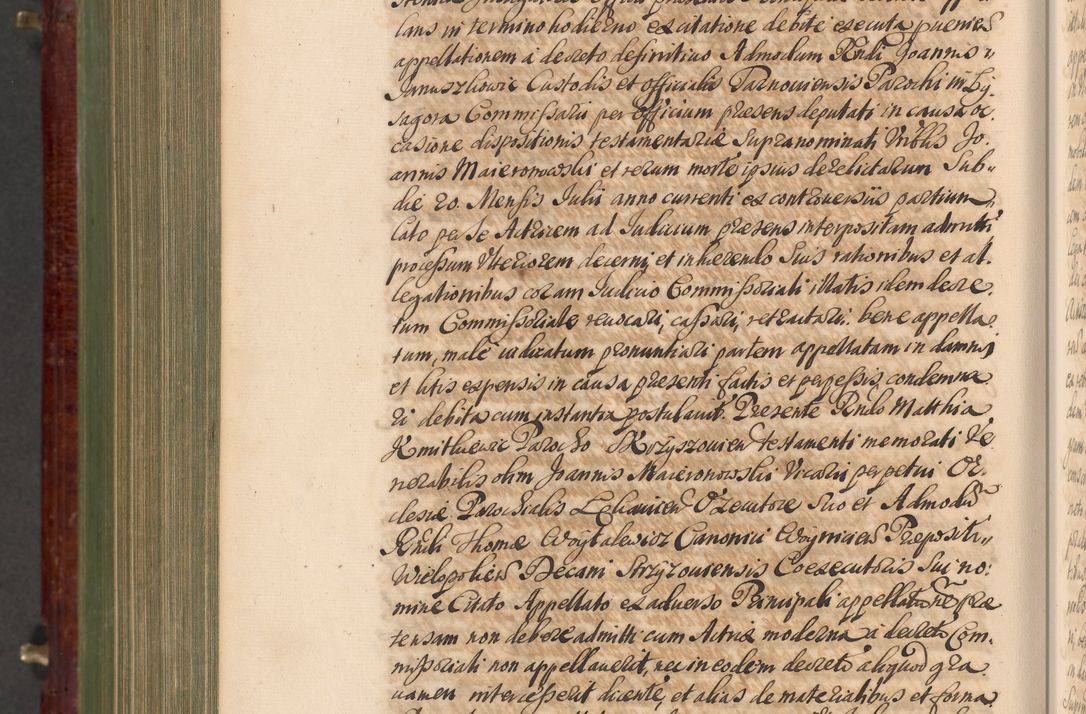 lans in termino hodierno ex citatione debite executa pueniens
appellationem à decreto definitivo Admodum Rndi Joannis
Januszkowic Custodis et officialis Tarnoviensis Parochi in Ły-
sagora Commissarii per officium præsens deputati in causa oc-
casione dispositionis testamentariæ supranominati Vrblis Jo-
annis Maieronowski et rerum morte ipsius derelictarum sub
die 20. Mensis Julii anno currenti ex controversiis partium
lato per se Actricem ad Judicium præsens interpositam admitti
processum Ulteriorem decerni, et inhærendo suis rationibus et al-
legationibus coram Judicio Commissoriali illatis idem decre-
tum Commissoriale revocari, cassari, retractari. bene appella-
tum, malè iudicatum pronuntiari partem appellatam in damnis
et litis expensis in causa præsenti factis et perpessis, condemna-
ri debita cum instantia postulavit. Præsente Rndo Matthia
Kmitkiewic Parocho Krzyszoviens testamenti memorati Ve-
nerabilis olim Joannis Maieronowski Vicarii perpetui Ec-
clesiæ Parochialis Executore suo et Admodu
Rndi Thomæ Woytalewicz Canonici Woyniciens Præpositi
Wielopoliens Decani Strzyzoviensis Coexecutoris sui no-
mine Citato Appellato ex adverso Principali appellatione præ-
tensam non debere admitti cum Actrix moderna à decreto Com-
missoriali non appellaverit, nec in eodem decreto aliquod gra-
vamen intercesserit dicente, et alias de materialibus et forma